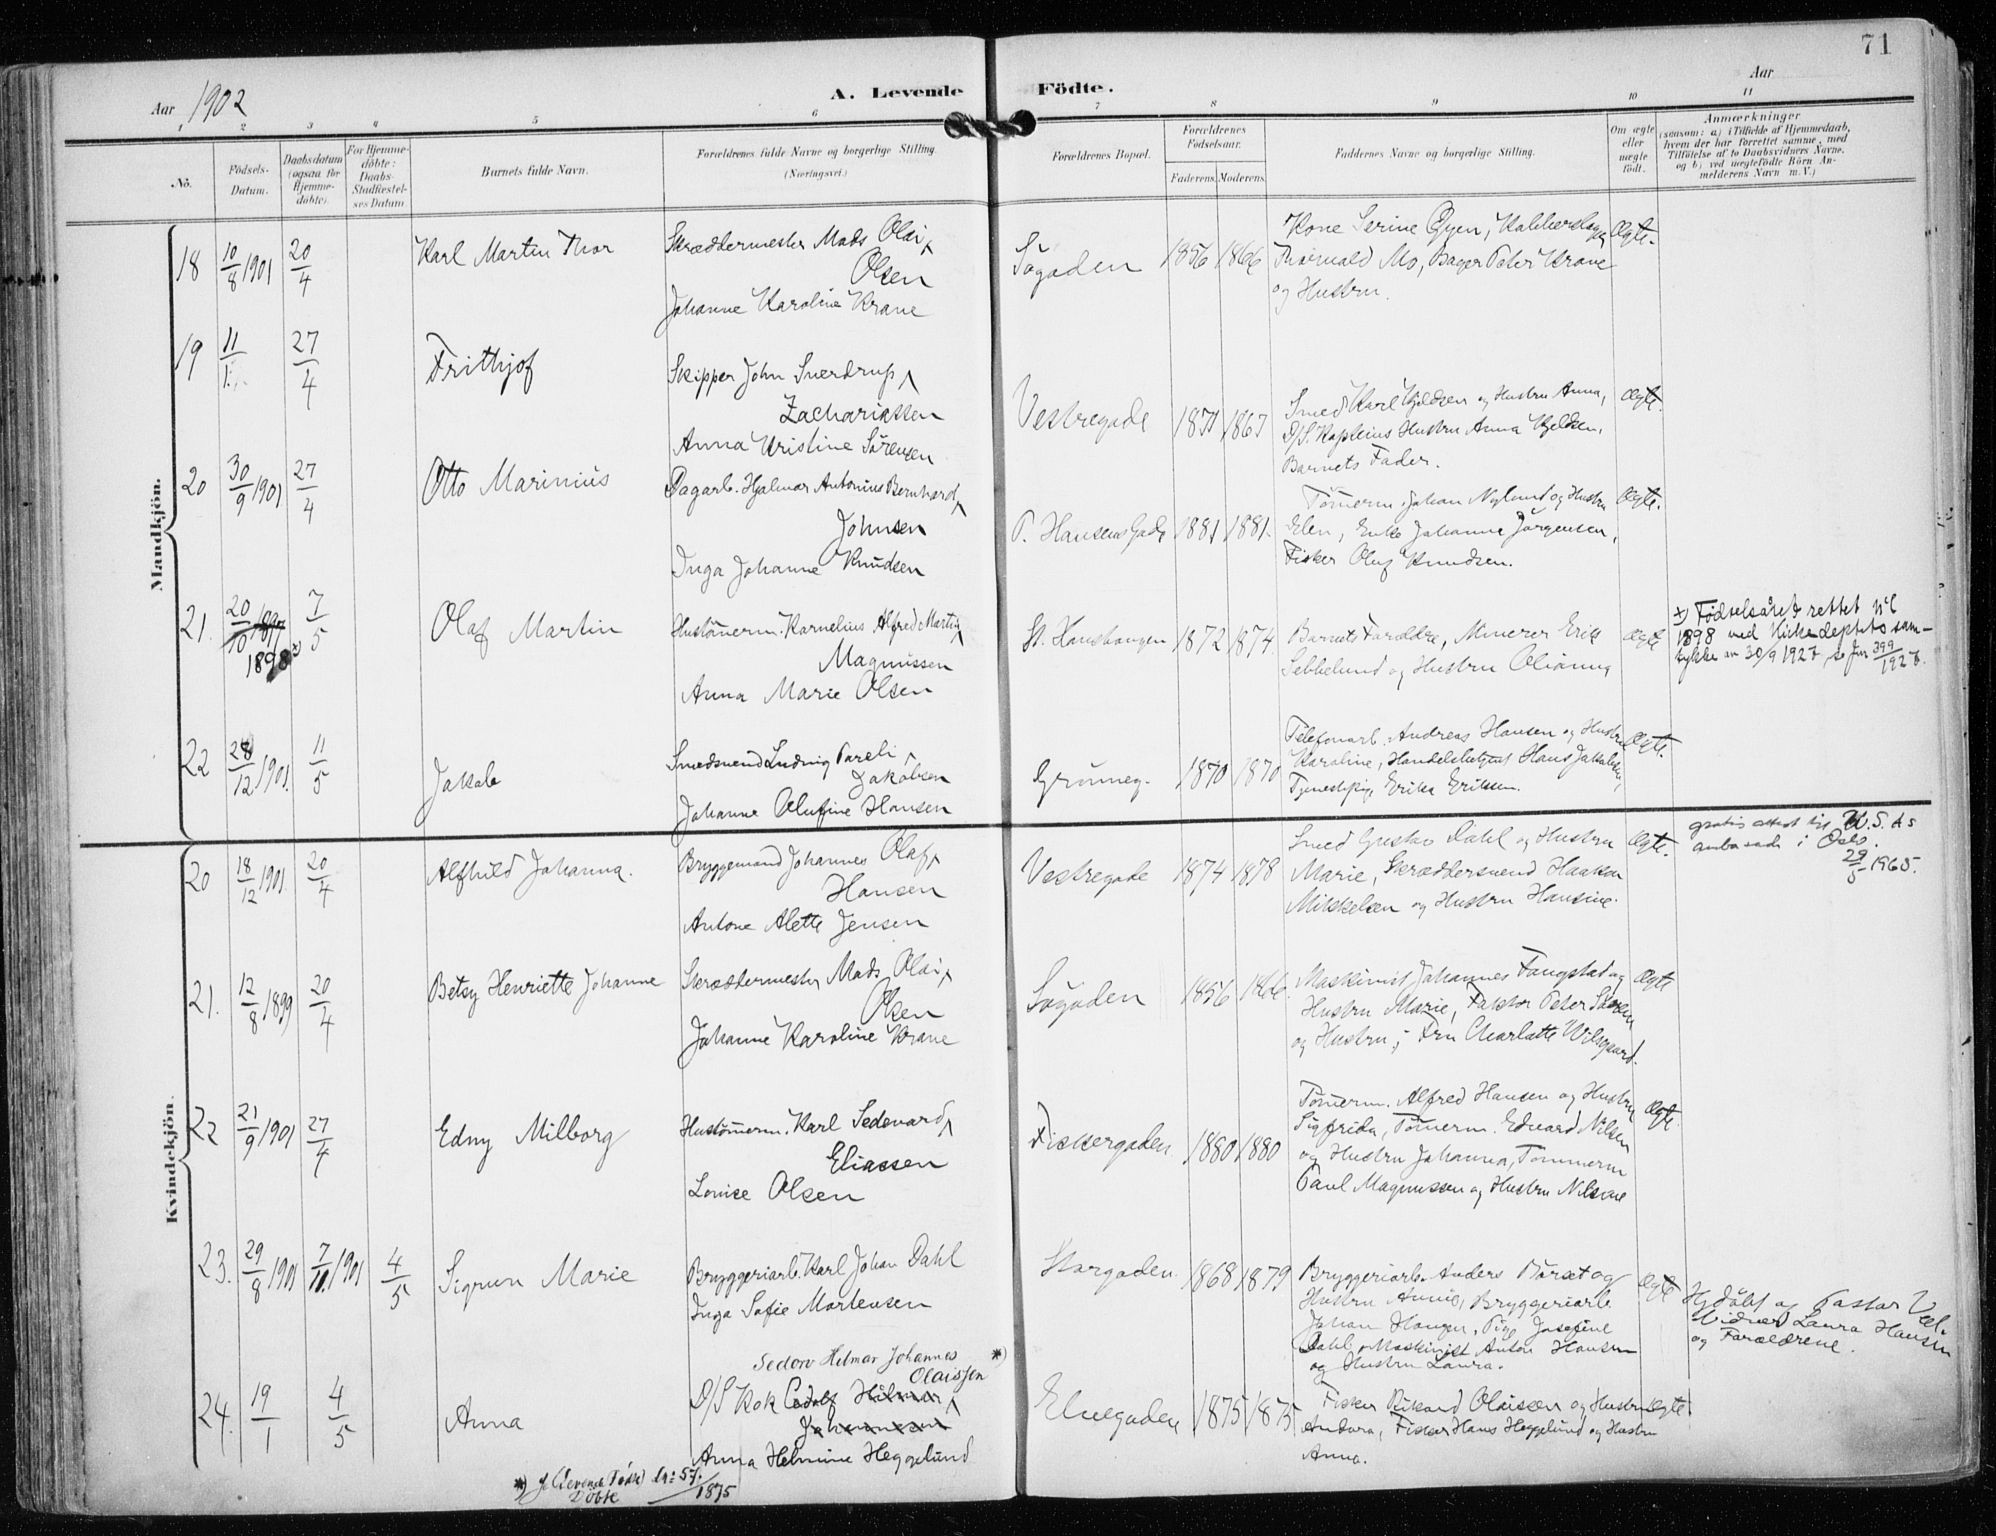 71
Aar 1902
A. Levende Födte.
Aar
1 2 3 4 5 6 7 8 9 10 11
No.
Födsels-Datum.
Daabsdatum (ogsaa for Hjemme-döbte).
For Hjemme-döbte: Daabs-Stadfæstel-ses Datum
Barnets fulde Navn.
Forældrenes fulde Navne og borgerlige Stilling (Næringsvei.)
Forældrenes Bopæl.
Forældrenes Födselsaar.
Faderens. Moderens.
Faddernes Navne og borgerlige Stilling.
Om ægte eller uægte födt.
Anmærkninger
(saasom: a) i Tilfælde af Hjemmedaab, hvem der har forrettet samme, med Tilföielse af to Daabsvidners Navne. og b) ved uægtefödte Börn An-melderens Navn m. V.)
Mandkjön.
18 10/8 1901 20/4 Karl Martin Thor
Skræddermester Mads Olai
Olsen
Johanne Karoline Krane
Sögaden 1856 1866
Kone Serine Öyen,
Thorvald Mo, Bager Peter Krane
og Hustru.
Ægte.
19 11/1 27/4 Frithjof
Skipper John Sverdrup
Zachariassen
Anna Kristine Sörensen
Vestregade 1871 1867
Smed Karl Kjeldsen og Hustru Anna,
D/S. Kapteins Hustru Anna Kjeldsen,
Barnets Fader.
Ægte.
20 30/9 1901 27/4 Otto Marinius
Dagarb. Hjalmar Antonius Bernhard
Johnsen
Inga Johanne Knudsen
P. Hansens Gade 1881 1881.
Tömerm. Johan Nylund og Hustru
Elen, Enke Johanne Jörgensen,
Fisker Oluf Knudsen.
Ægte.
21. 20/10 1897 7/5 Olaf Martin
1898 x)
Hustömerm. Kornelius Alfred Martin
Magnussen
Anna Marie Olsen
St. Hanshaugen 1872 1874
Barnets Forældre, Minerer Erik
Sebbelund og Hustru Olianna
Ægte
x) Födselsåret rettet til
1898 ved Kirkedeptets sam-
tykke av 30/9 1927, se jnr 399/1927.
22 28/12 1901. 11/5 Jakob
Smedsvend Ludvig Pareli
Jakobsen
Johanne Olufine Hansen
Grönneg. 1870 1870
Telefonarb. Andreas Hansen og Hustru
Karoline, Handelsbetjent Hans Jakobsen,
Tjenestepige Erika Eriksen.
Ægte.
Kvindekjön.
20 18/12 1901 20/4 Alfhild Johanna.
Bryggemand Johannes Olaf
Hansen
Antone Alette Jensen
Vestregade 1874 1878
Smed Gustav Dahl og Hustru
Marie, Skræddersvend Haakon
Mikkelsen og Hustru Hansine.
Ægte.
gratis attest til U.S.As
ambasade i Oslo.
29/5 1965.
21. 12/8 1899 20/4 Betsy Henriette Johanne
Skræddermester Mads Olai
Olsen
Johanne Karoline Krane
Sögaden 1856 1866.
Maskinist Johannes Fangstad og
Hustru Marie, Faktor Peter
og Hustru, Fru Charlotte Wilsgaard.
Ægte
22 21/9 1901 27/4 Edny Milborg
Hustömerm. Karl Sedevard
Eliassen
Lovise Olsen
Fiskergaden 1880 1880
Tömerm. Alfred Hansen og Hustru
Sigfrida, Tömerm. Edvard Nilsen
og Hustru Johanna, Tömmerm
Paul Magnussen og Hustru Nilsine
Ægte.
23. 29/8 1901 7/10. 1901 4/5 Sigrun Marie
Bryggeriarb. Karl Johan Dahl
Inga Sofie Mortensen
Storgaden. 1868 1879
Bryggeriarb. Anders Börset og
Hustru Annie, Bryggeriarb.
Johan Hanger, Pige Josefine
Dahl, Maskinist Anton Hansen
og Hustru Laura.
Ægte
Hjdöbt af Pastor
Vidner Laura Hansen
og Forældrene.
Sedorv Helmar Johannes *)
Olaissen
24. 19/1 4/5 Anna
D/S Kok Edolf Hilmar
Johannesen
Anna Helmine Heggelund
Elvegaden 1875 1875
Fisker Rikard Olaissen og Hustru
Andora, Fisker Hans Heggelund og Hustru
Anna.
Ægte.
*) Levende Födte No 57.
Döbte 1875